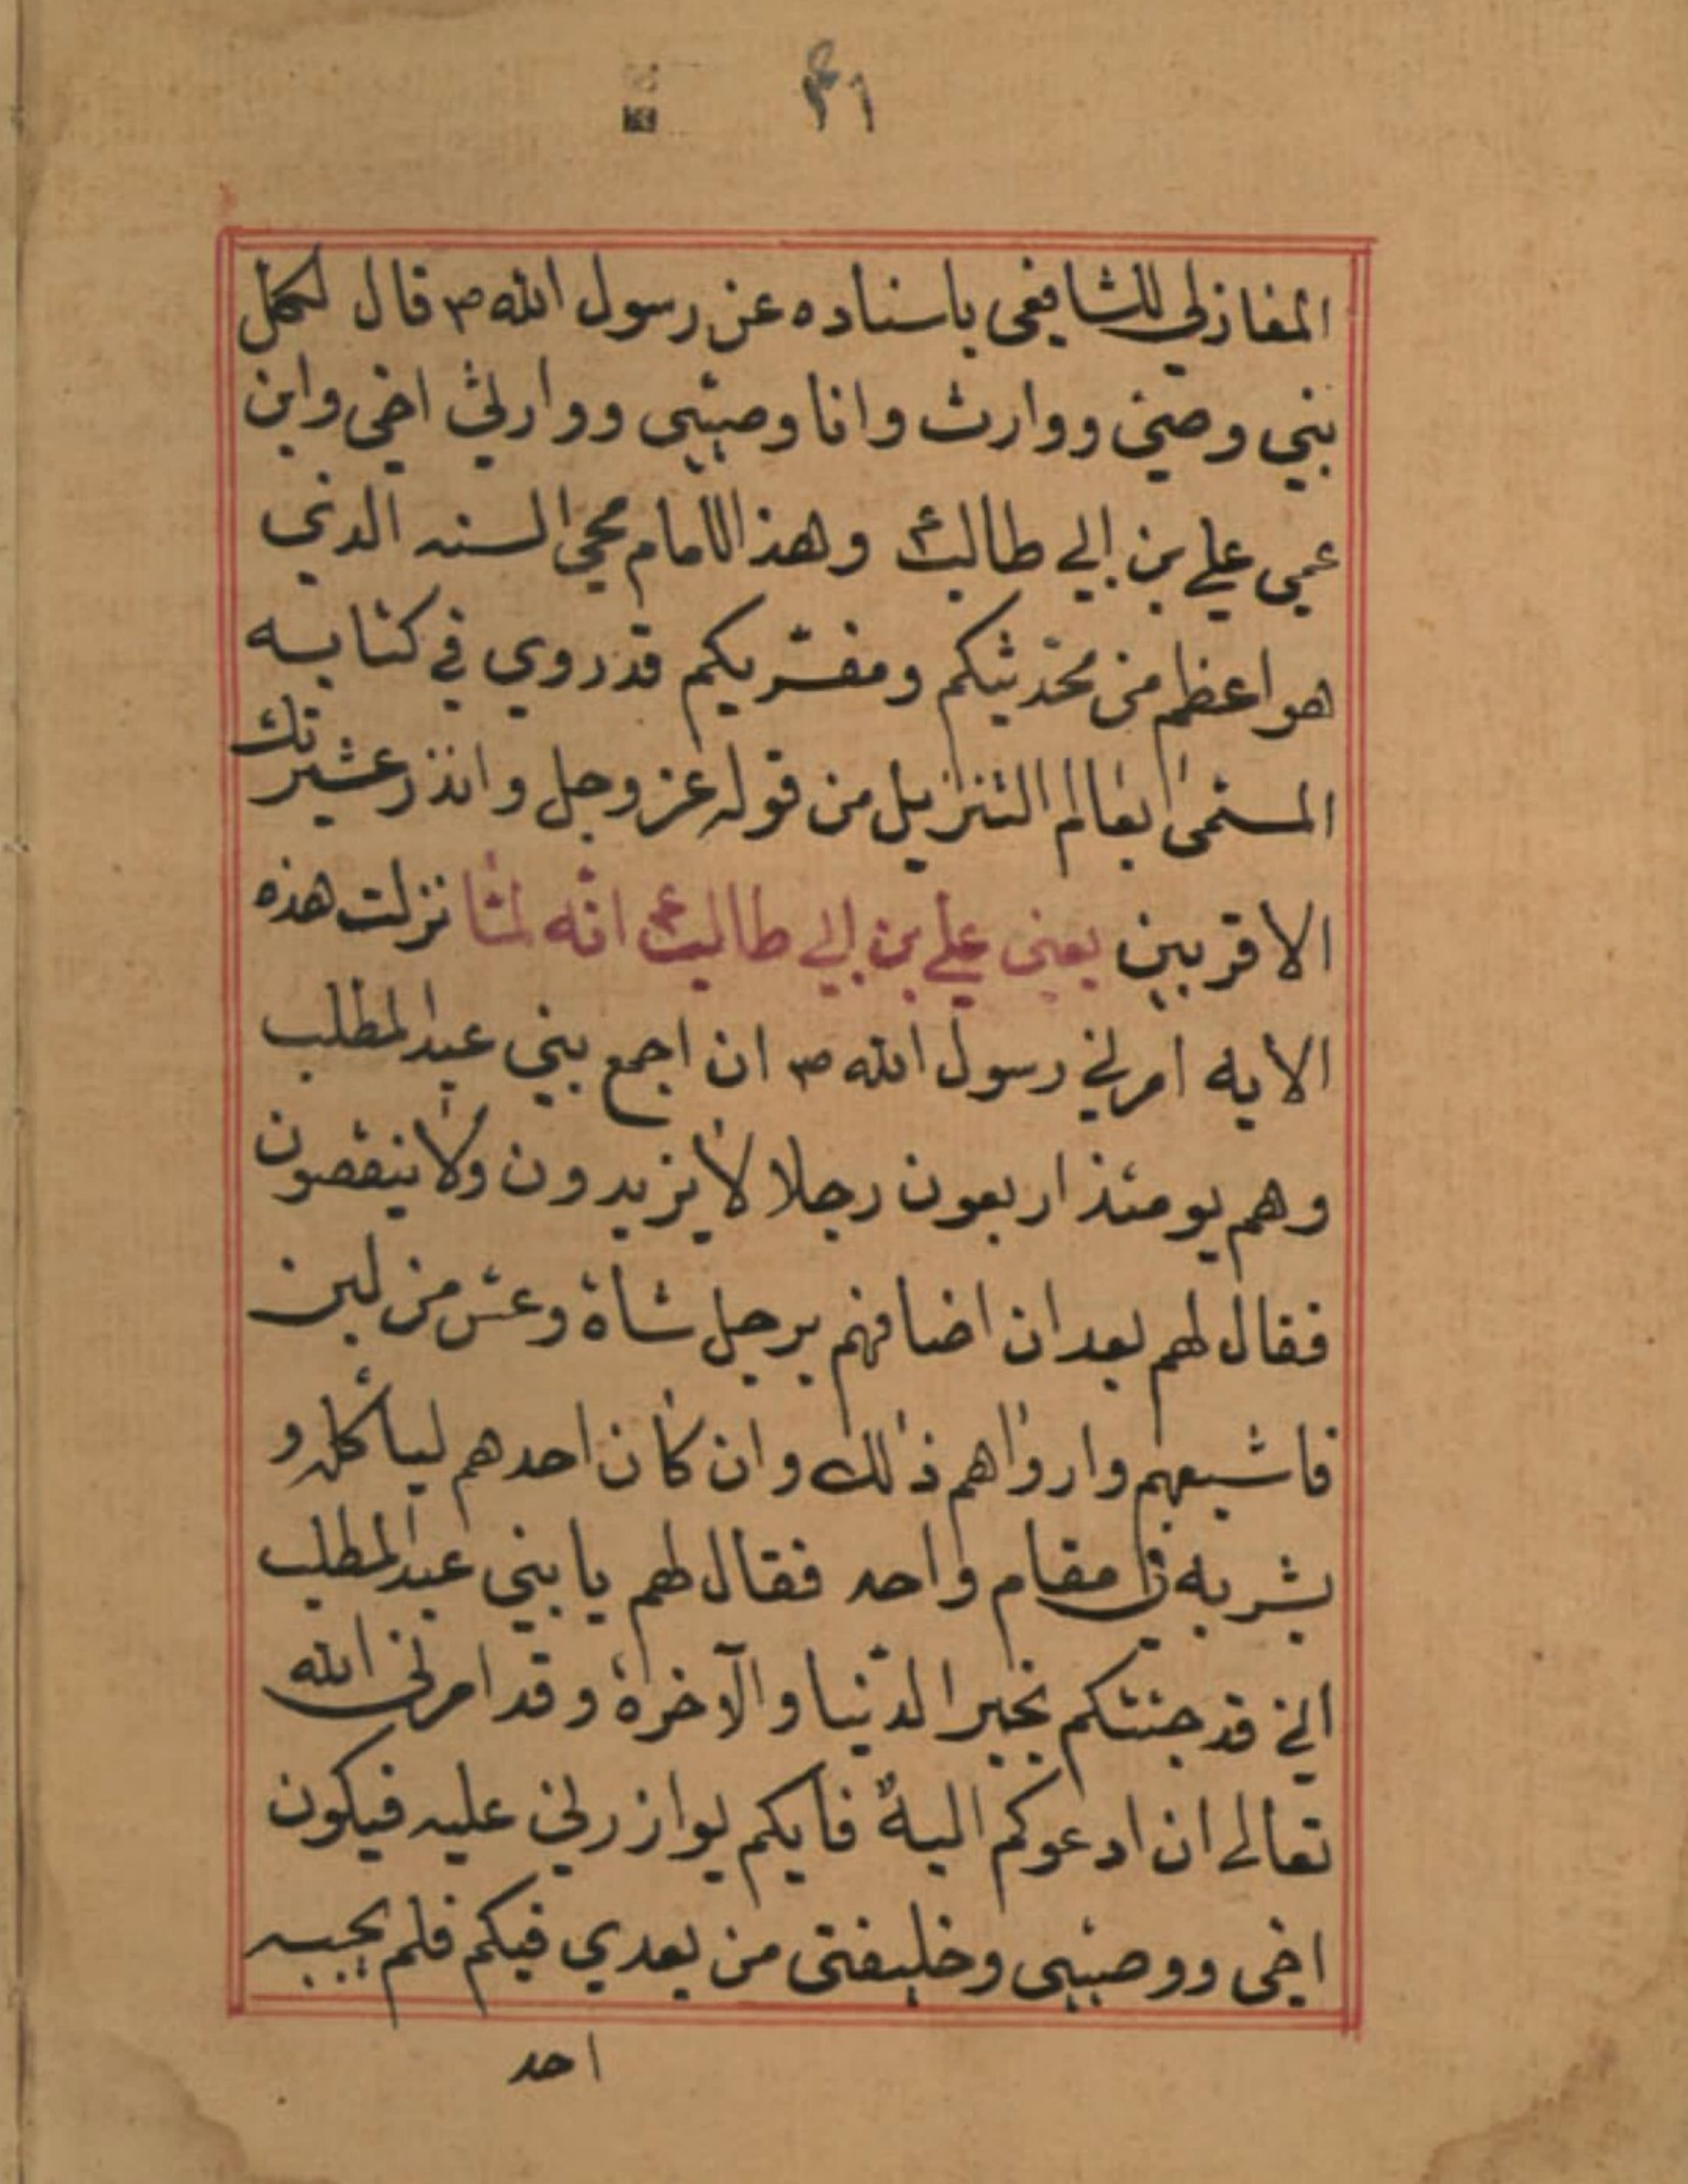 المغازلي الشافعي باسناده عن رسول الله ص قال لكل
نبي وصي ووارث وانا وصيي ووارثي اخي وابن
عمي علي بن ابي طالب ع وهذا الامام محيي السنه الذي
هو اعظم من محدثيكم ومفسريكم قد روي في كتابه
المسمى بعالم التنزيل من قوله عز وجل وانذر عشيرتك
الاقربين يعني علي بن ابي طالب ع انه لما نزلت هذه
الايه امرني رسول الله ص ان اجمع بني عبد المطلب
وهم يومئذ اربعون رجلا لا يزيدون ولا ينقصون
فقال لهم بعد ان اضافهم برجل شاة وعس من لبن
فاشبعهم وارواهم ذلك وان كان احدهم لياكله و
يشربه في مقام واحد فقال لهم يا بني عبد المطلب
اني قد جئتكم بخير الدنيا والآخرة وقد امرني الله
تعالى ان ادعوكم اليه فايكم يوازرني عليه فيكون
اخي ووصيي وخليفتي من بعدي فيكم فلم يجبه
احد